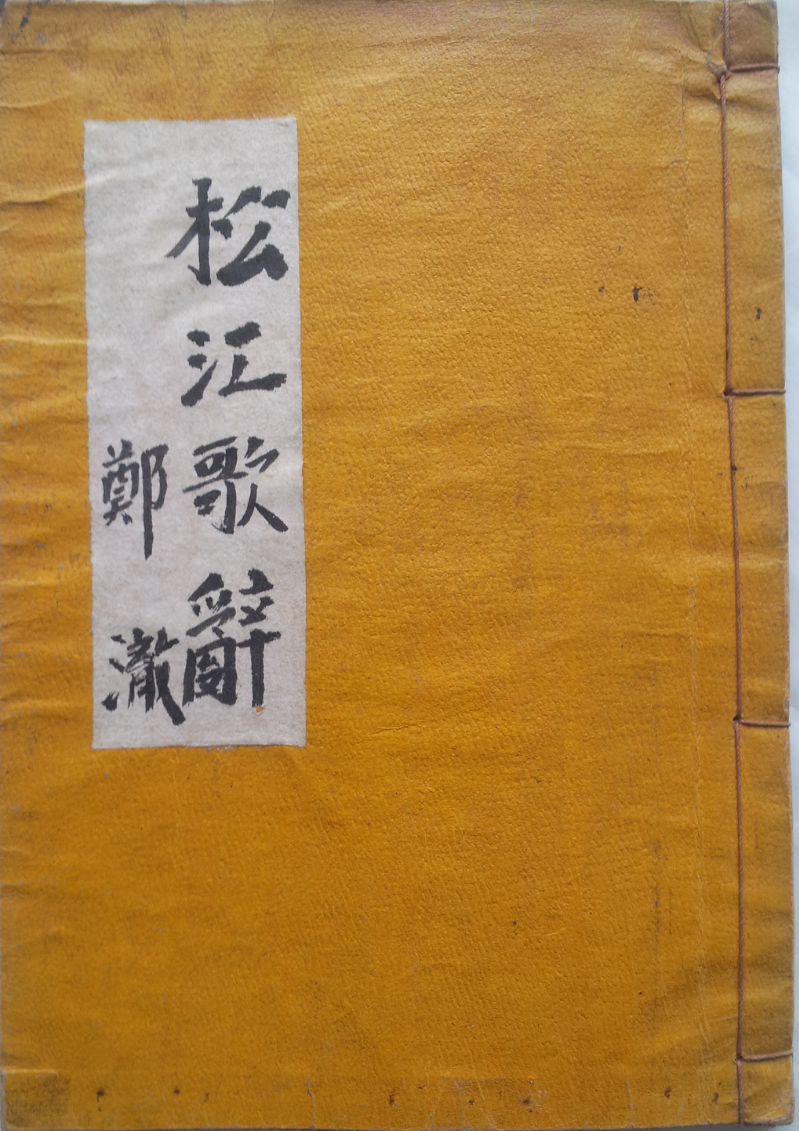 松江歌辭
鄭澈